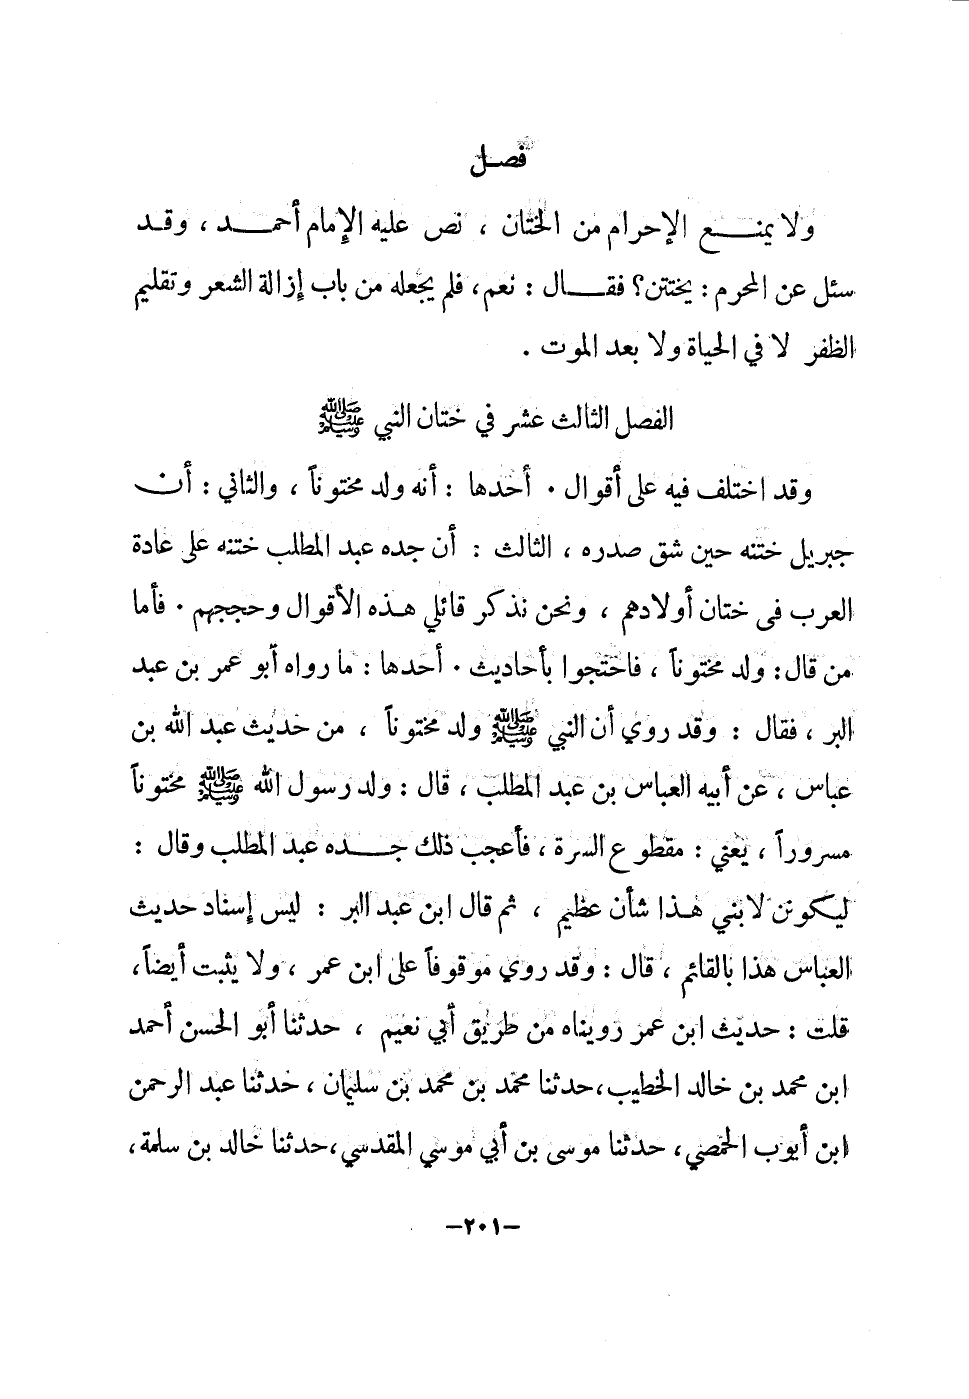 فصل
ولا يمنع الإحرام من الختان ، نص عليه الإمام أحمد ، وقد
سئل عن المحرم : يختتن؟ فقال : نعم، فلم يجعله من باب إزالة الشعر وتقليم
الظفر لا في الحياة ولا بعد الموت .
الفصل الثالث عشر في ختان النبي ﷺ
وقد اختلف فيه على أقوال . أحدها : أنه ولد مختوناً ، والثاني : أن
جبريل ختنه حين شق صدره ، الثالث : أن جده عبد المطلب ختنه على عادة
العرب في ختان أولادهم ، ونحن نذكر قائلي هذه الأقوال وحججهم . فأما
من قال : ولد مختوناً ، فاحتجوا بأحاديث . أحدها : ما رواه أبو عمر بن عبد
البر ، فقال : وقد روي أن النبي ﷺ ولد مختوناً ، من حديث عبد الله بن
عباس ، عن أبيه العباس بن عبد المطلب ، قال : ولد رسول الله ﷺ مختوناً
مسروراً ، يعني : مقطوع السرة ، فأعجب ذلك جده عبد المطلب وقال :
ليكونن لابني هذا شأن عظيم ، ثم قال ابن عبد البر : ليس إسناد حديث
العباس هذا بالقائم ، قال : وقد روي موقوفاً على ابن عمر ، ولا يثبت أيضاً،
قلت : حديث ابن عمر رويناه من طريق أبي نعيم ، حدثنا أبو الحسن أحمد
ابن محمد بن خالد الخطيب، حدثنا محمد بن محمد بن سليمان ، حدثنا عبد الرحمن
ابن أيوب الحمصي، حدثنا موسى بن أبي موسي المقدسي، حدثنا خالد بن سلمة،
-٢٠١-